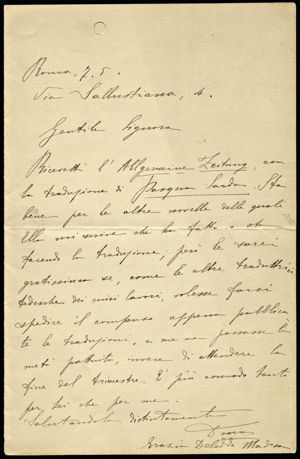 Roma, 7. 5.
Via Sallustiana, 4.
Gentile Signora
Ricevetti l'Allgemeine Zeitung, con
la traduzione di Pasqua Sarda. Sta
bene per le altre novelle delle quali
Ella mi scrive che ha fatto o sta
facendo la traduzione, però le sarei
gratissima se, come le altre traduttrici
tedesche dei miei lavori, volesse farsi
spedire il compenso appena pubblica-
te le traduzioni, e me ne passasse la
metà pattuita, invece di attendere la
fine del trimestre. È più comodo tanto
per lei che per me.
Salutandola distintamente
Grazia Deledda Madesani